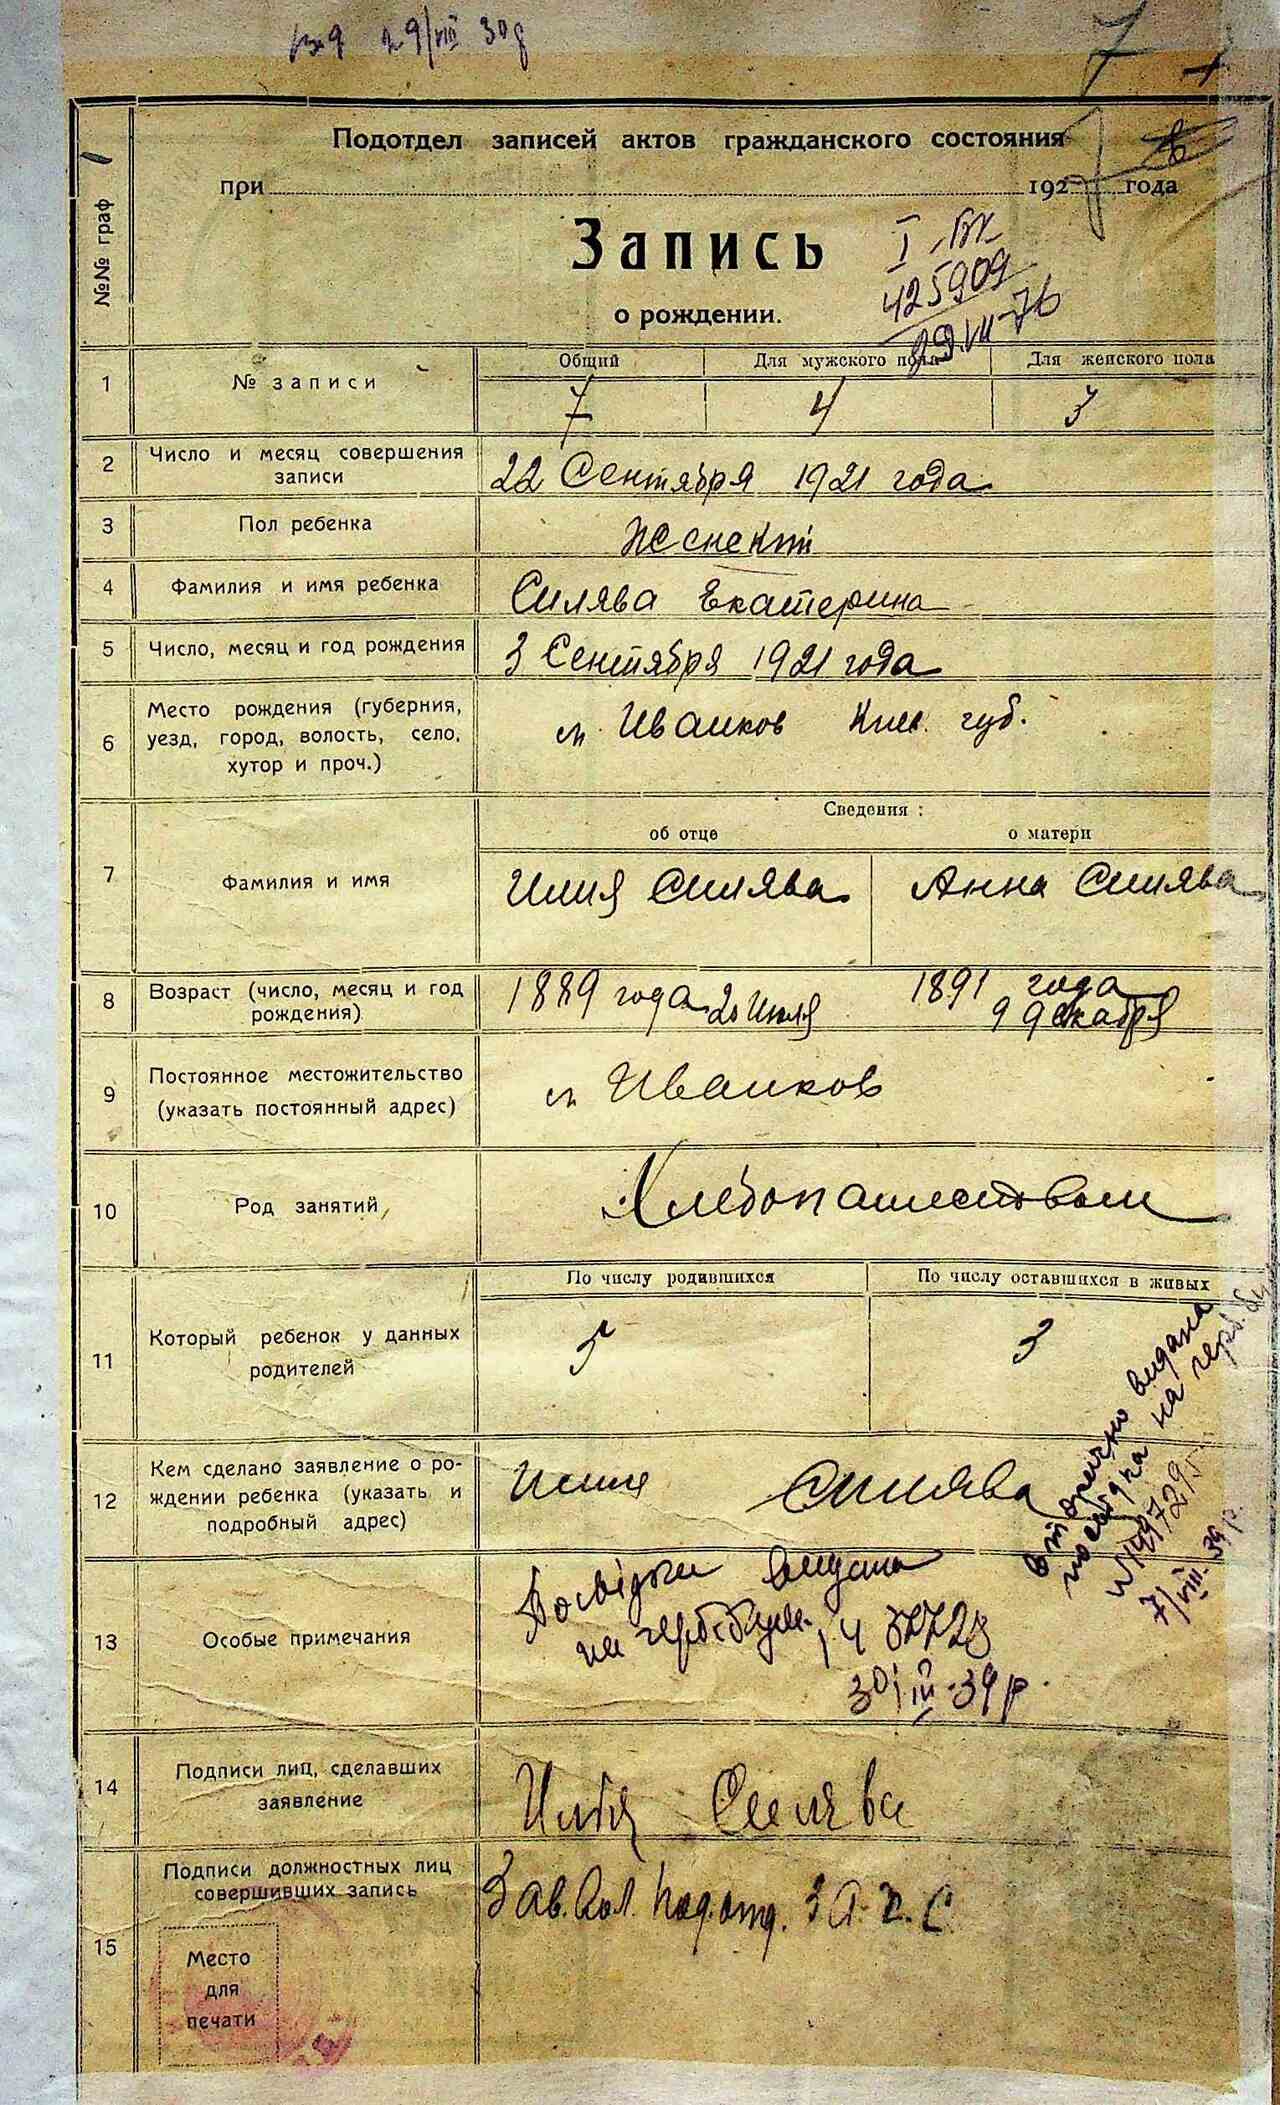 29/VIII 30 р
7
Подотдел записей актов гражданского состояния
при 192 года
Запись
о рождении.
I
425909
29.VII-76
№№ граф
Общий Для мужского пола Для женского пола
1 № записи 7 4 3
2 Число и месяц совершения
записи
22 Сентября 1921 года
3 Пол ребенка
4 Фамилия и имя ребенка Силява Екатерина
5 Число, месяц и год рождения 3 Сентября 1921 года
6 Место рождения (губерния,
уезд, город, волость, село,
хутор и проч.)
м. Иванков Киев. губ.
Сведения:
об отце о матери
7 Фамилия и имя Илия Силява Анна Силява
8 Возраст (число, месяц и год
рождения)
1889 года 20 Июля 1891 года
9 Декабря
9 Постоянное местожительство
(указать постоянный адрес)
м Иванков
10 Род занятий Хлебопашеством
По числу родившихся По числу оставшихся в живых
11 Который ребенок у данных
родителей
5 3
12 Кем сделано заявление о ро-
ждении ребенка (указать и
подробный адрес)
Илия Силява
вторично видана
посвідка на герб.
7/VIII-39 р.
13 Особые примечания
Посвідки видана
на герб.
30/III-39 р.
14 Подписи лиц, сделавших
заявление
Илья Силява
15 Подписи должностных лиц
совершивших запись
Зав. Вол. Подотд. З.А.Г.С.
Место
для
печати